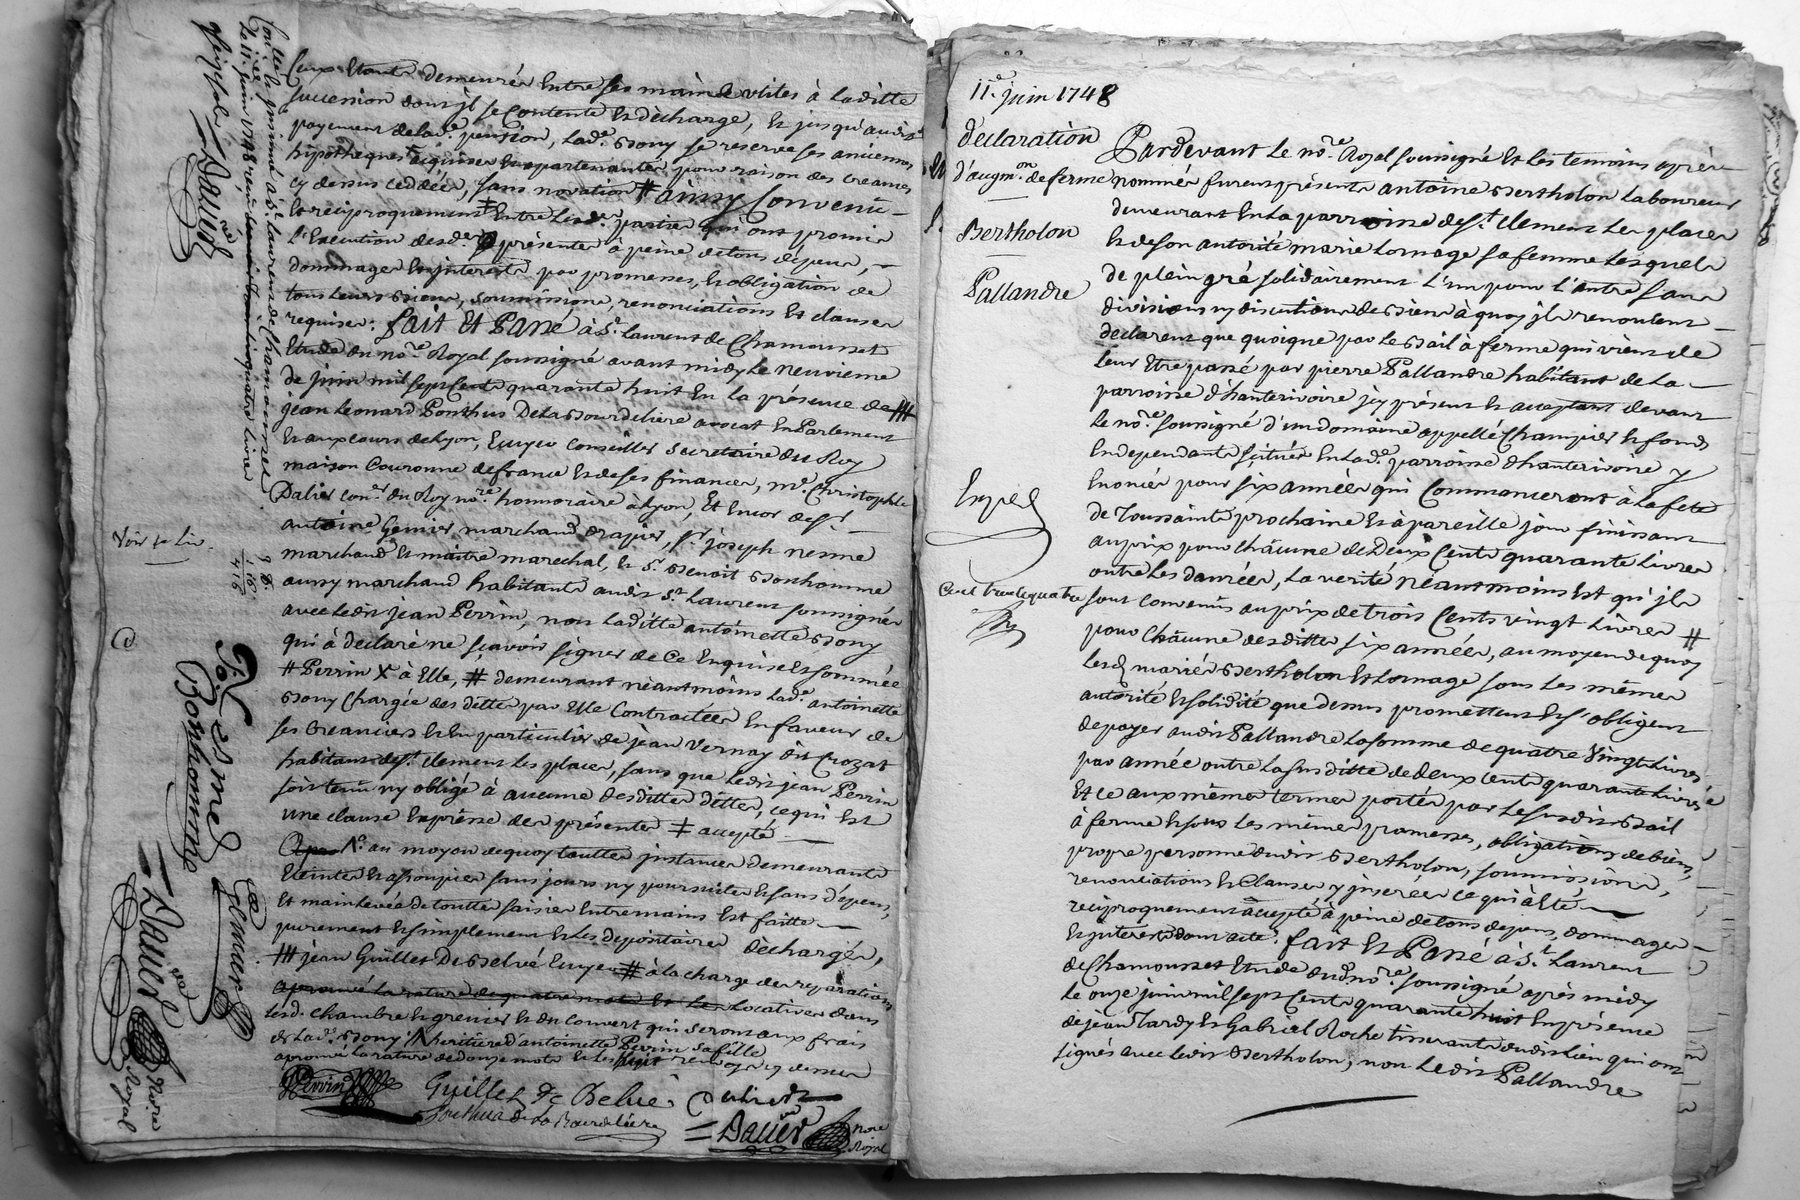 Ceux Etants demeurés Entre ses mains utiles à Laditte
succession dont jl se Contente et décharge, et jusqu'audit
payement de lade pension, lade Bony se reserve ses anciennes
hipotheques pour raison des Creances
cy dessus ceddées, sans novation # ainsy Convenu
et reciproquement Entre Lesdes parties qui ont promis
L'Execution desdes présentes à peine de tous dépens,
dommages et interests par promesses, et obligation de
tous leurs Biens, soumissions, renonciations Et clauses
requises. fait Et Passé à St Laurent de Chamousset
Etude du nore Royal soussigné avant midy Le neuvieme
de juin mil sept cents quarante huit En la présence de #
jean Leonard Ponthus Dela Bourdeliere avocat En Parlement
et aux cours de Lyon, Ecuyer Conseiller Secretaire du Roy
maison Couronne de france et de ses finances, me Christophle
Dalier coner du Roy nore honnoraire à Lyon, Et Encor de sr
antoine Genier marchand drapier, sr joseph nesme
marchand et maitre marechal, et sr Benoit Bonhomme
aussy marchand habitants audit St Laurent soussignés
avec Ledit jean Perrin, non Laditte antoinette Bony
qui à declaré ne sçavoir signer de ce Enquise et sommée
# Perrin X à Elle, # demeurant néantmoins lade antoinette
Bony Chargée des dettes par Elle Contractées En faveur de
ses Creanciers et En particulier de jean Vernay dit Crozat
habitant de St Clement les places, sans que Ledit jean Perrin
soit tenu ny obligé à aucune desdittes dettes, ce qui Est
une clause Expresse des présentes # accepté
au moyen de quoy touttes jnstances demeurants
Eteintes et assoupies sans jours ny poursuites et sans dépens,
Et mainlevée de touttes saisies Entre mains Est faitte
purement et simplement et Les depositaires déchargés,
# jean Guillet De Belvé Ecuyer # à la charge des reparations
aprouvé La rature de quatre mots Et Les Locatives dans
lesd. chambre et grenier et du Couvert qui seront aux frais
de lade Bony heritiere d'antoinette Perrin sa fille
aprouvé la rature de douze mots et les renvoys cy dessus
Perrin
Guillet De Belvé
Dalier
Ponthus De La Bourdeliere
Dalier nore Royal
Voir le Liv.
@
Nesme
Bonhomme
Genier
Dalier
Notre Royal
11e juin 1748
declaration
d'augmon de ferme
Bertholon
Pallandre
Expéd
Cent trente quatre
Pardevant Le nore Royal soussigné et Les temoins après
nommés furent présents antoine Bertholon Laboureur
demeurant En La parroisse de St Clement Les places
et de son autorité marie Lornage sa femme Lesquels
de plein gré solidairement L'un pour l'autre sans
divisions ny discutions de Biens à quoy jls renoncent
declarent que quoique par le Bail à ferme qui vient de
leur Etre passé par pierre Pallandre habitant de La
parroisse d'hauterivoire jcy présent et acceptant devant
Le nore soussigné d'un domaine appellé Champier et fonds
En dependants scitués En lade parroisse d'hauterivoire y
Enoncés pour six années qui Commanceront à La fete
de Toussaints prochaine et à pareille jour finissant
au prix pour chaicune de Deux Cents quarante Livres
outre Les danrées, La verité néantmoins Est qu'jls
sont convenus au prix de trois Cents vingt Livres #
pour chaicune desdittes six années, au moyen de quoy
Lesd. mariés Bertholon et Lornage sous Les mêmes
autorité et solidité que dessus promettent et s'obligent
de payer audit Pallandre La somme de quatre Vingt Livres
par année outre La susditte de deux Cents quarante Livres
Et ce aux mêmes termes portés par Le susdit Bail
à ferme et sous Les mêmes promesses, obligations de biens,
propre personne dudit Bertholon, soumissions,
renonciations et Clauses y jnserées ce qui à Eté
reciproquement accepté à peine de tous depens, dommages
et interests dont acte. fait et Passé à St Laurent
de Chamousset Etude dudt nore soussigné après midy
Le onze juin mil sept Cents quarante huit En présence
de jean Tardy et Gabriel Roche tisserants dudit Lieu qui ont
signés avec Ledit Bertholon, non Ledit Pallandre